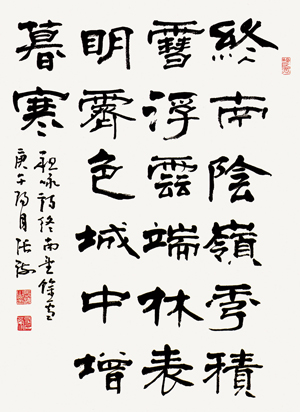 終南陰嶺秀積
雪浮雲端林表
明霽色城中增
暮寒
祖詠詩終南望餘雪
庚午陽月張海